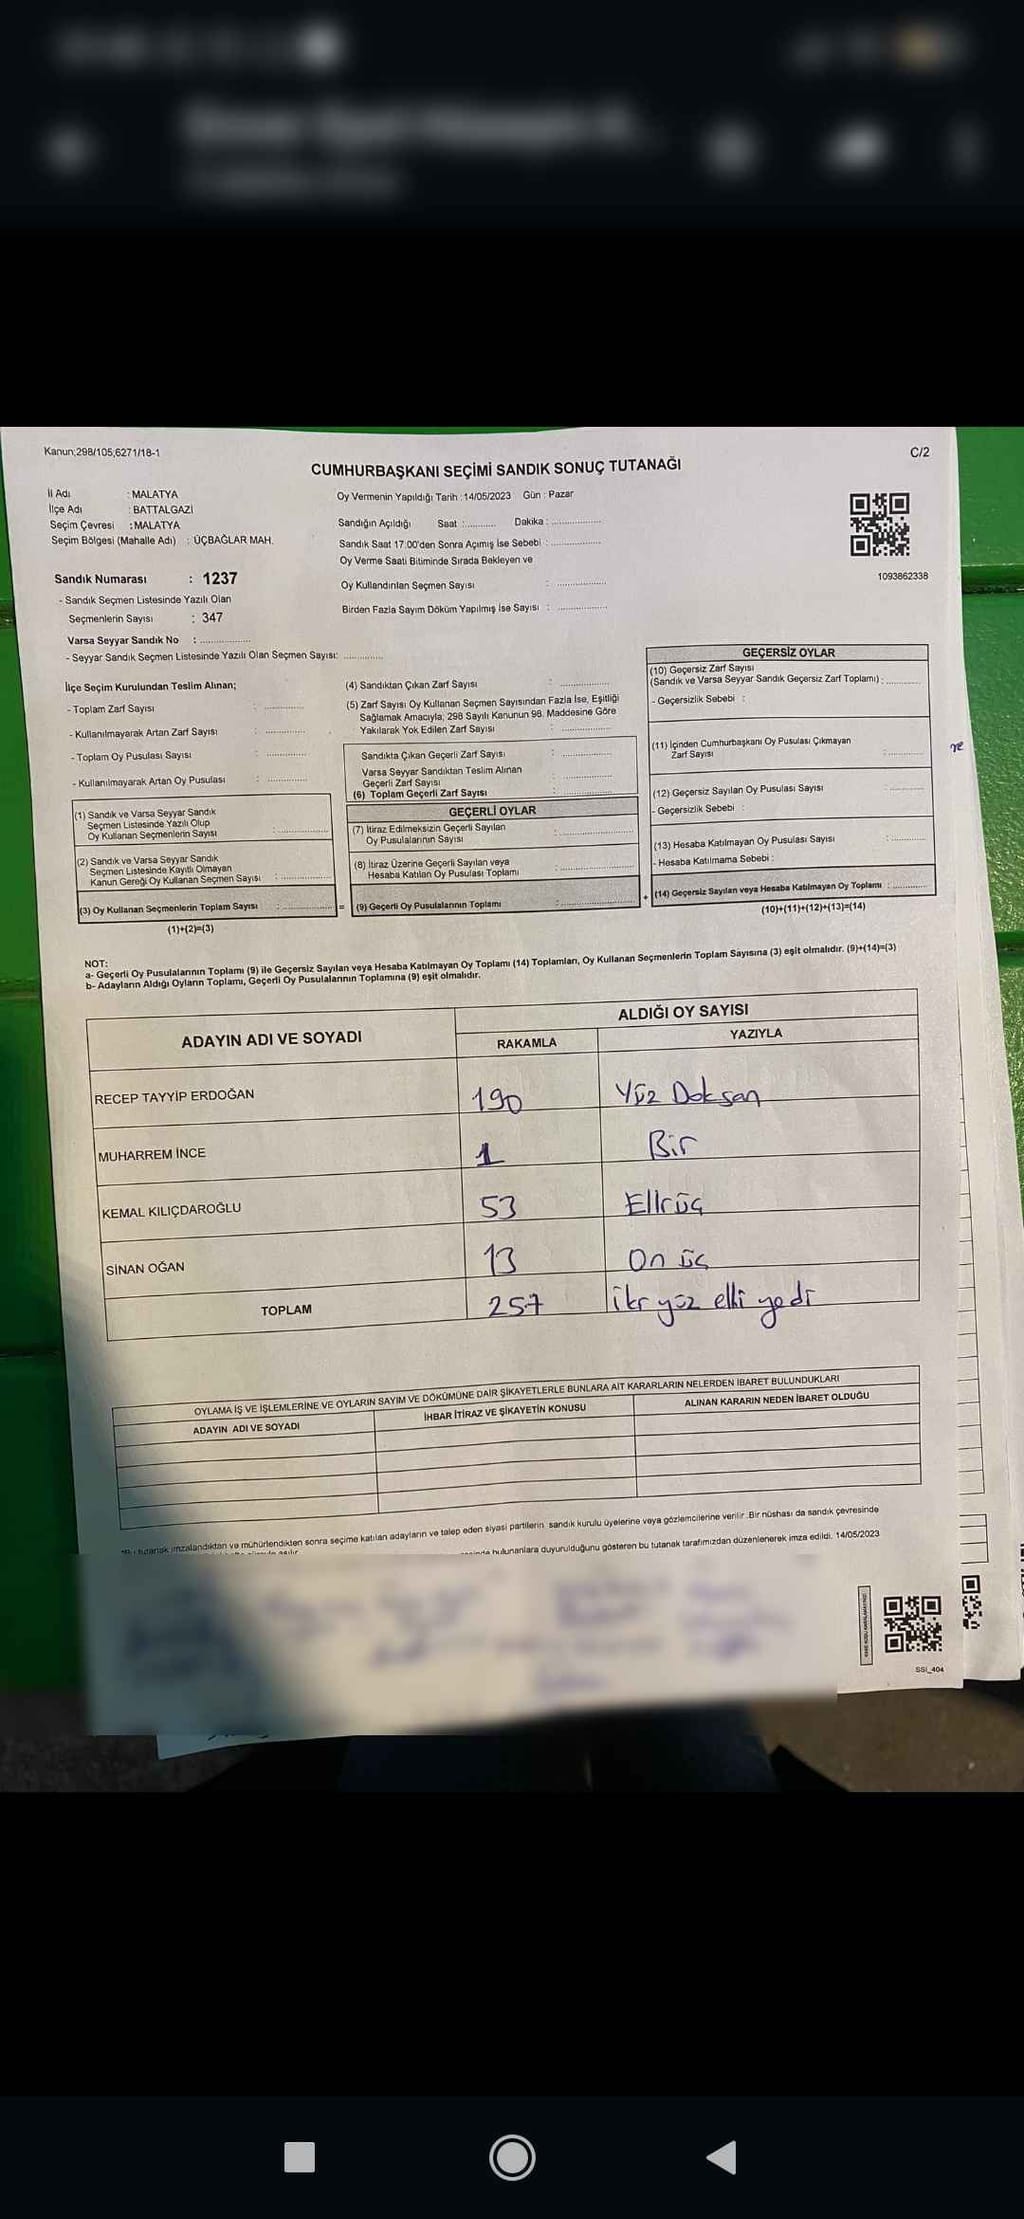 Kanun;298/105,6271/18-1
C/2
CUMHURBAŞKANI SEÇİMİ SANDIK SONUÇ TUTANAĞI
İl Adı : MALATYA
İlçe Adı : BATTALGAZİ
Seçim Çevresi : MALATYA
Seçim Bölgesi (Mahalle Adı) : ÜÇBAĞLAR MAH.
Sandık Numarası : 1237
- Sandık Seçmen Listesinde Yazılı Olan
Seçmenlerin Sayısı : 347
Varsa Seyyar Sandık No : ..............
- Seyyar Sandık Seçmen Listesinde Yazılı Olan Seçmen Sayısı: ..............
Oy Vermenin Yapıldığı Tarih : 14/05/2023 Gün : Pazar
Sandığın Açıldığı Saat : .......... Dakika : ..............
Sandık Saat 17:00'den Sonra Açımış İse Sebebi : ..............
Oy Verme Saati Bitiminde Sırada Bekleyen ve
Oy Kullandırılan Seçmen Sayısı : ..............
Birden Fazla Sayım Döküm Yapılmış İse Sayısı : ..............
1093862338
İlçe Seçim Kurulundan Teslim Alınan;
- Toplam Zarf Sayısı : ..............
- Kullanılmayarak Artan Zarf Sayısı : ..............
- Toplam Oy Pusulası Sayısı : ..............
- Kullanılmayarak Artan Oy Pusulası : ..............
(1) Sandık ve Varsa Seyyar Sandık
Seçmen Listesinde Yazılı Olup
Oy Kullanan Seçmenlerin Sayısı : ..............
(2) Sandık ve Varsa Seyyar Sandık
Seçmen Listesinde Kayıtlı Olmayan
Kanun Gereği Oy Kullanan Seçmen Sayısı : ..............
(3) Oy Kullanan Seçmenlerin Toplam Sayısı : .............. =
(1)+(2)=(3)
(4) Sandıktan Çıkan Zarf Sayısı : ..............
(5) Zarf Sayısı Oy Kullanan Seçmen Sayısından Fazla İse, Eşitliği
Sağlamak Amacıyla; 298 Sayılı Kanunun 98. Maddesine Göre
Yakılarak Yok Edilen Zarf Sayısı : ..............
Sandıkta Çıkan Geçerli Zarf Sayısı : ..............
Varsa Seyyar Sandıktan Teslim Alınan
Geçerli Zarf Sayısı : ..............
(6) Toplam Geçerli Zarf Sayısı : ..............
GEÇERLİ OYLAR
(7) İtiraz Edilmeksizin Geçerli Sayılan
Oy Pusulalarının Sayısı : ..............
(8) İtiraz Üzerine Geçerli Sayılan veya
Hesaba Katılan Oy Pusulası Toplamı : ..............
(9) Geçerli Oy Pusulalarının Toplamı : .............. +
GEÇERSİZ OYLAR
(10) Geçersiz Zarf Sayısı
(Sandık ve Varsa Seyyar Sandık Geçersiz Zarf Toplamı) : ..........
- Geçersizlik Sebebi :
(11) İçinden Cumhurbaşkanı Oy Pusulası Çıkmayan
Zarf Sayısı : ..........
(12) Geçersiz Sayılan Oy Pusulası Sayısı : ..........
- Geçersizlik Sebebi :
(13) Hesaba Katılmayan Oy Pusulası Sayısı : ..........
- Hesaba Katılmama Sebebi :
(14) Geçersiz Sayılan veya Hesaba Katılmayan Oy Toplamı : ..........
(10)+(11)+(12)+(13)=(14)
NOT:
a- Geçerli Oy Pusulalarının Toplamı (9) ile Geçersiz Sayılan veya Hesaba Katılmayan Oy Toplamı (14) Toplamları, Oy Kullanan Seçmenlerin Toplam Sayısına (3) eşit olmalıdır. (9)+(14)=(3)
b- Adayların Aldığı Oyların Toplamı, Geçerli Oy Pusulalarının Toplamına (9) eşit olmalıdır.
ADAYIN ADI VE SOYADI
ALDIĞI OY SAYISI
RAKAMLA YAZIYLA
RECEP TAYYİP ERDOĞAN 190 Yüz Doksan
MUHARREM İNCE 1 Bir
KEMAL KILIÇDAROĞLU 53 Elliüç
SİNAN OĞAN 13 On üç
TOPLAM 257 iki yüz elli yedi
OYLAMA İŞ VE İŞLEMLERİNE VE OYLARIN SAYIM VE DÖKÜMÜNE DAİR ŞİKAYETLERLE BUNLARA AİT KARARLARIN NELERDEN İBARET BULUNDUKLARI
ADAYIN ADI VE SOYADI İHBAR İTİRAZ VE ŞİKAYETİN KONUSU ALINAN KARARIN NEDEN İBARET OLDUĞU
tutanak imzalandıktan ve mühürlendikten sonra seçime katılan adayların ve talep eden siyasi partilerin sandık kurulu üyelerine veya gözlemcilerine verilir. Bir nüshası da sandık çevresinde
bulunanlara duyurulduğunu gösteren bu tutanak tarafımızdan düzenlenerek imza edildi. 14/05/2023
SSI_404